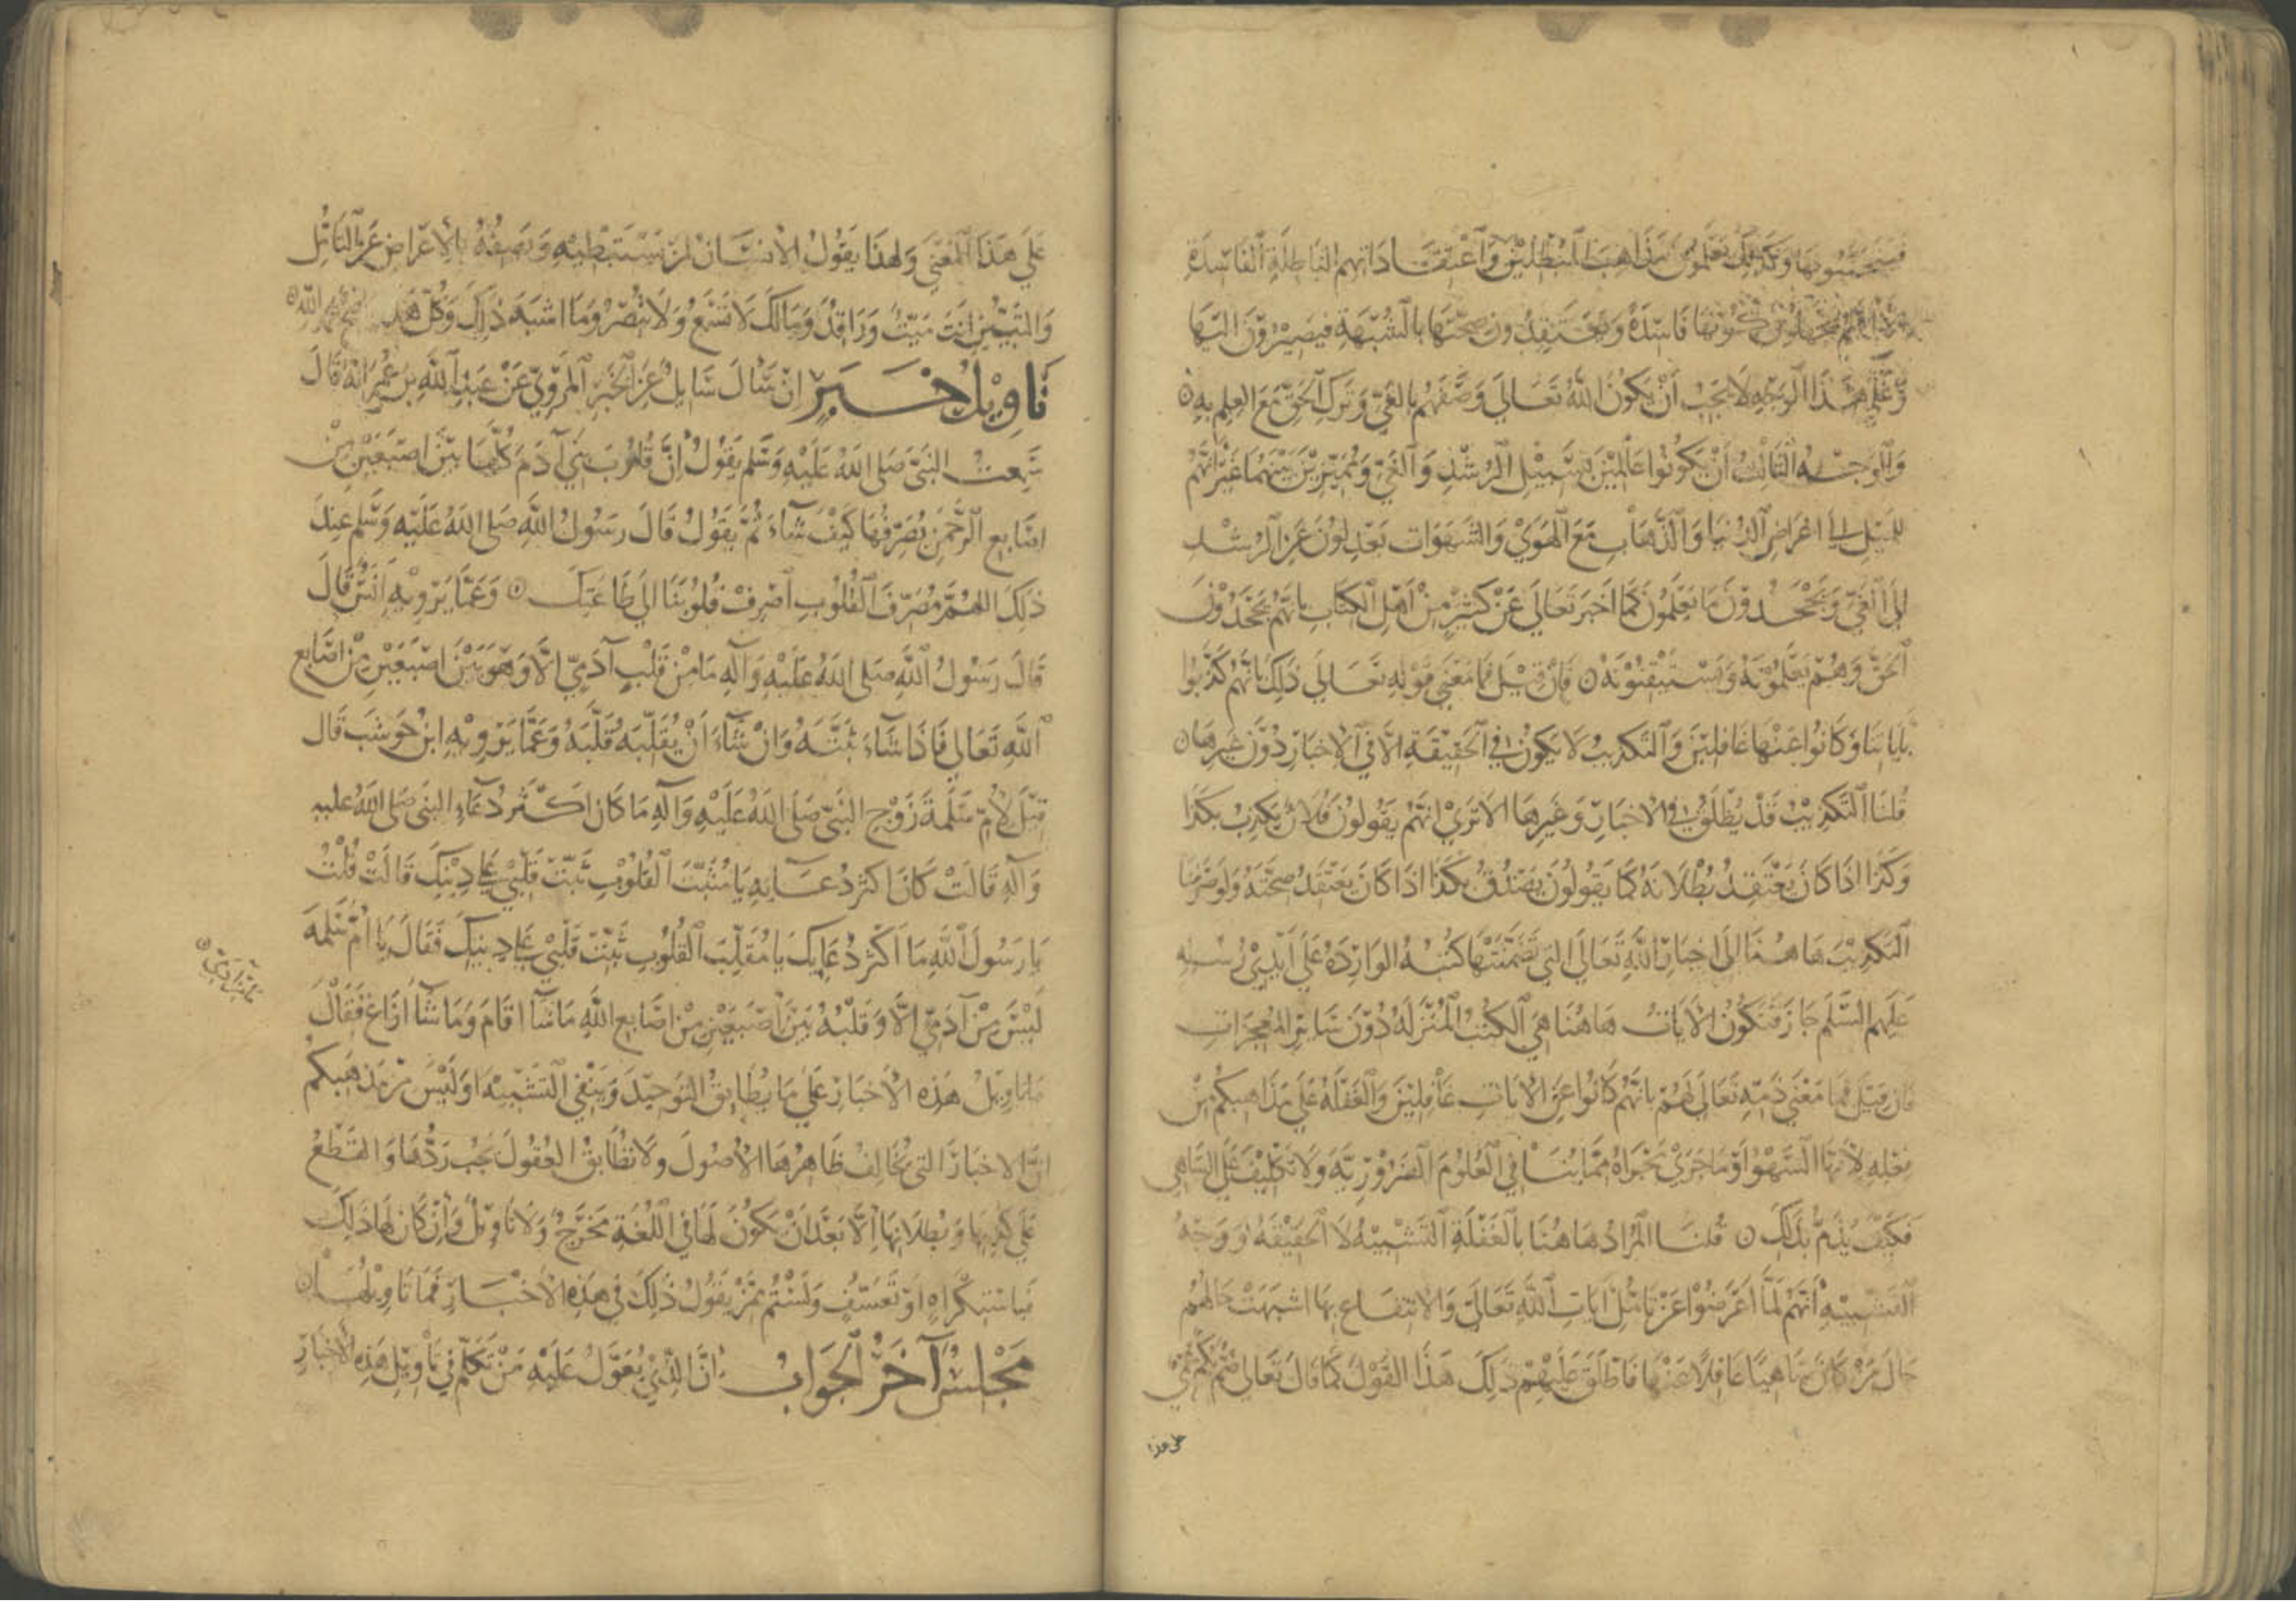 فيتجنبونها وكذلك يعلمون مذاهب المبطلين واعتقاداتهم الباطلة الفاسدة
يجهلون كونها فاسدة ويعتقدون صحتها بالشبهة فيصيرون اليها
وعلى هذا الوجه لا يجب أن يكون الله تعالى وصفهم بالغي وترك الحق مع العلم به
والوجه الثالث أن يكونوا عالمين بسبيل الرشد والغي ومميزين بينهما غير انهم
للميل إلى اعراض الدنيا والذهاب مع الهوى والشهوات يعدلون عن الرشد
الى الغي ويجحدون ما يعلمون كما اخبر تعالى عن كثير من اهل الكتاب بانهم يجحدون
الحق وهم يعلمونه ويستيقنونه فان قيل فما معنى قوله تعالى ذلك بانهم كذبوا
باياتنا وكانوا عنها غافلين والتكذيب لا يكون في الحقيقة الا في الاخبار دون غيرها
قلنا التكذيب قد يطلق في الاخبار وغيرها الا ترى انهم يقولون فلان يكذب بكذا
وكذا اذا كان يعتقد بطلانه كما يقولون يصدق بكذا اذا كان يعتقد صحته ولو صرفنا
التكذيب هاهنا الى اخبار الله تعالى التي تضمنتها كتبه الواردة على ايدي رسله
عليهم السلم جاز فتكون الايات هاهنا هي الكتب المنزلة دون سائر المعجزات
فان قيل فما معنى ذمه تعالى لهم بانهم كانوا عن الايات غافلين والغفلة على مذاهبكم من
فعله لانها السهو او ما جرى مجراه مما ينافي العلوم الضرورية ولا تكليف على الساهي
فكيف يذم بذلك قلنا المراد هاهنا بالغفلة التشبيه لا الحقيقة ووجه
التشبيه أنهم لما اعرضوا عن تامل ايات الله تعالى والانتفاع بها اشبهت حالهم
حال من كان ساهيا غافلا عنها فاطلق عليهم ذلك هذا القول كما قال تعالى صم بكم عمي
على هذا
على هذا المعنى ولهذا يقول الانسان لمن يستبطيه ويصفه بالاعراض عن التامل
والتبيين انت ميت وراقد ومالك لا تسمع ولا تبصر وما اشبه ذلك وكل هذا بحمد الله
تاويل خبر ان سال سايل عن الخبر المروي عن عبد الله بن عمر انه قال
سمعت النبي صلى الله عليه وسلم يقول ان قلوب بني آدم كلها بين اصبعين من
اصابع الرحمن يصرفها كيف شاء ثم يقول قال رسول الله صلى الله عليه وسلم عند
ذلك اللهم مصرف القلوب اصرف قلوبنا الى طاعتك وعما يرويه انس قال
قال رسول الله صلى الله عليه وآله ما من قلب آدمي الا وهو بين اصبعين من اصابع
الله تعالى فاذا شاء ثبته وان شاء ان يقلبه قلبه وعما يرويه ابن حوشب قال
قيل لام سلمة زوج النبي صلى الله عليه وآله ما كان اكثر دعاء النبي صلى الله عليه
وآله قالت كان اكثر دعايه يا مثبت القلوب ثبت قلبي على دينك قالت قلت
يا رسول الله ما اكثر دعايك يا مقلب القلوب ثبت قلبي على دينك فقال يا ام سلمة
ليس من آدمي الا وقلبه بين اصبعين من اصابع الله ما شا اقام وما شا ازاغ فقال
ما تاويل هذه الاخبار على ما يطابق التوحيد وينفي التشبيه اوليس من مذهبكم
ان الاخبار التي يخالف ظاهرها الاصول ولا تطابق العقول يجب ردها والقطع
على كذبها وبطلانها الا بعد ان يكون لها في اللغة مخرج ولا تاويل وان كان لها ذلك
فباستكراه او تعسف ولستم ممن يقول ذلك في هذه الاخبار فما تاويلها
مجلس آخر الجواب ان الذي يعول عليه من تكلم في تاويل هذه الاخبار